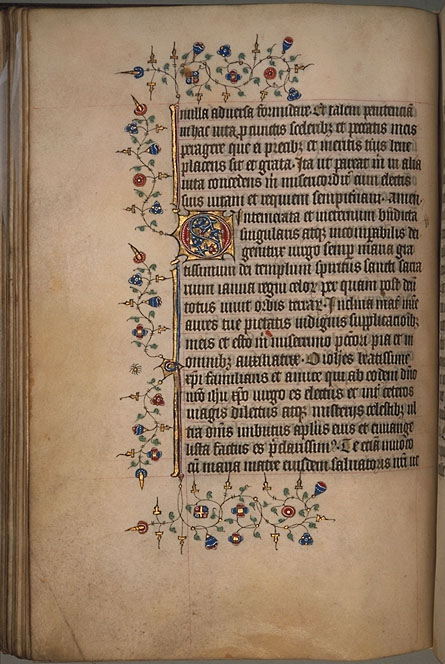 nulla adversa formidare. Et talem penitenciā
in hac vita p cunctis sceleribȝ et peccatis meis
peragere que ei precibȝ et meritis tuis bene
placens sit et grata. Ita ut parcat m in alia
vita concedens in misericordie cum electis
suis vitam et requiem sempiternam. Amen.
O Intemerata et ineternum bn̄dicta
singularis atqȝ incomparabilis dei
genitrix virgo semp maria gra
tissimum dei templum spiritus sancti sacra
rium ianua regni celor per quam post deū
totus vivit orbis terrar. Inclina mat mīe
aures tue pietatis indignis supplicaciōibȝ
meis et esto m miserimo pccori pia et in
omnibȝ auxiliatrix. O iohēs beatissime
xpi familiaris et amice qui ab eodem dn̄o
nr̄o ihu xp̄o virgo es electus et int ceteros
magis dilectus atqȝ misterijs celestibȝ ul
tra om̄s imbutus apl̄us eius et euange
lista factus es p̄clarissim9. Te eciā invoco
cū maria matre eiusdem salvatoris nr̄i ut